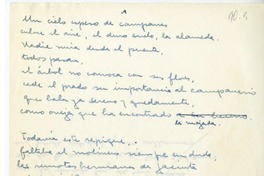 A
Un cielo espero de campanas
cubre el aire, el duro suelo, la alameda.
Nadie mira desde el puente,
todos pasan,
el árbol no conoce con sus flores,
cede el prado su importancia al campanario
que bala ya sereno y quedamente,
como oveja que ha encontrado
la majada.
Todavía este repique..
faltaba el molinero siempre en duda,
los remotos hermanos de Jacinta